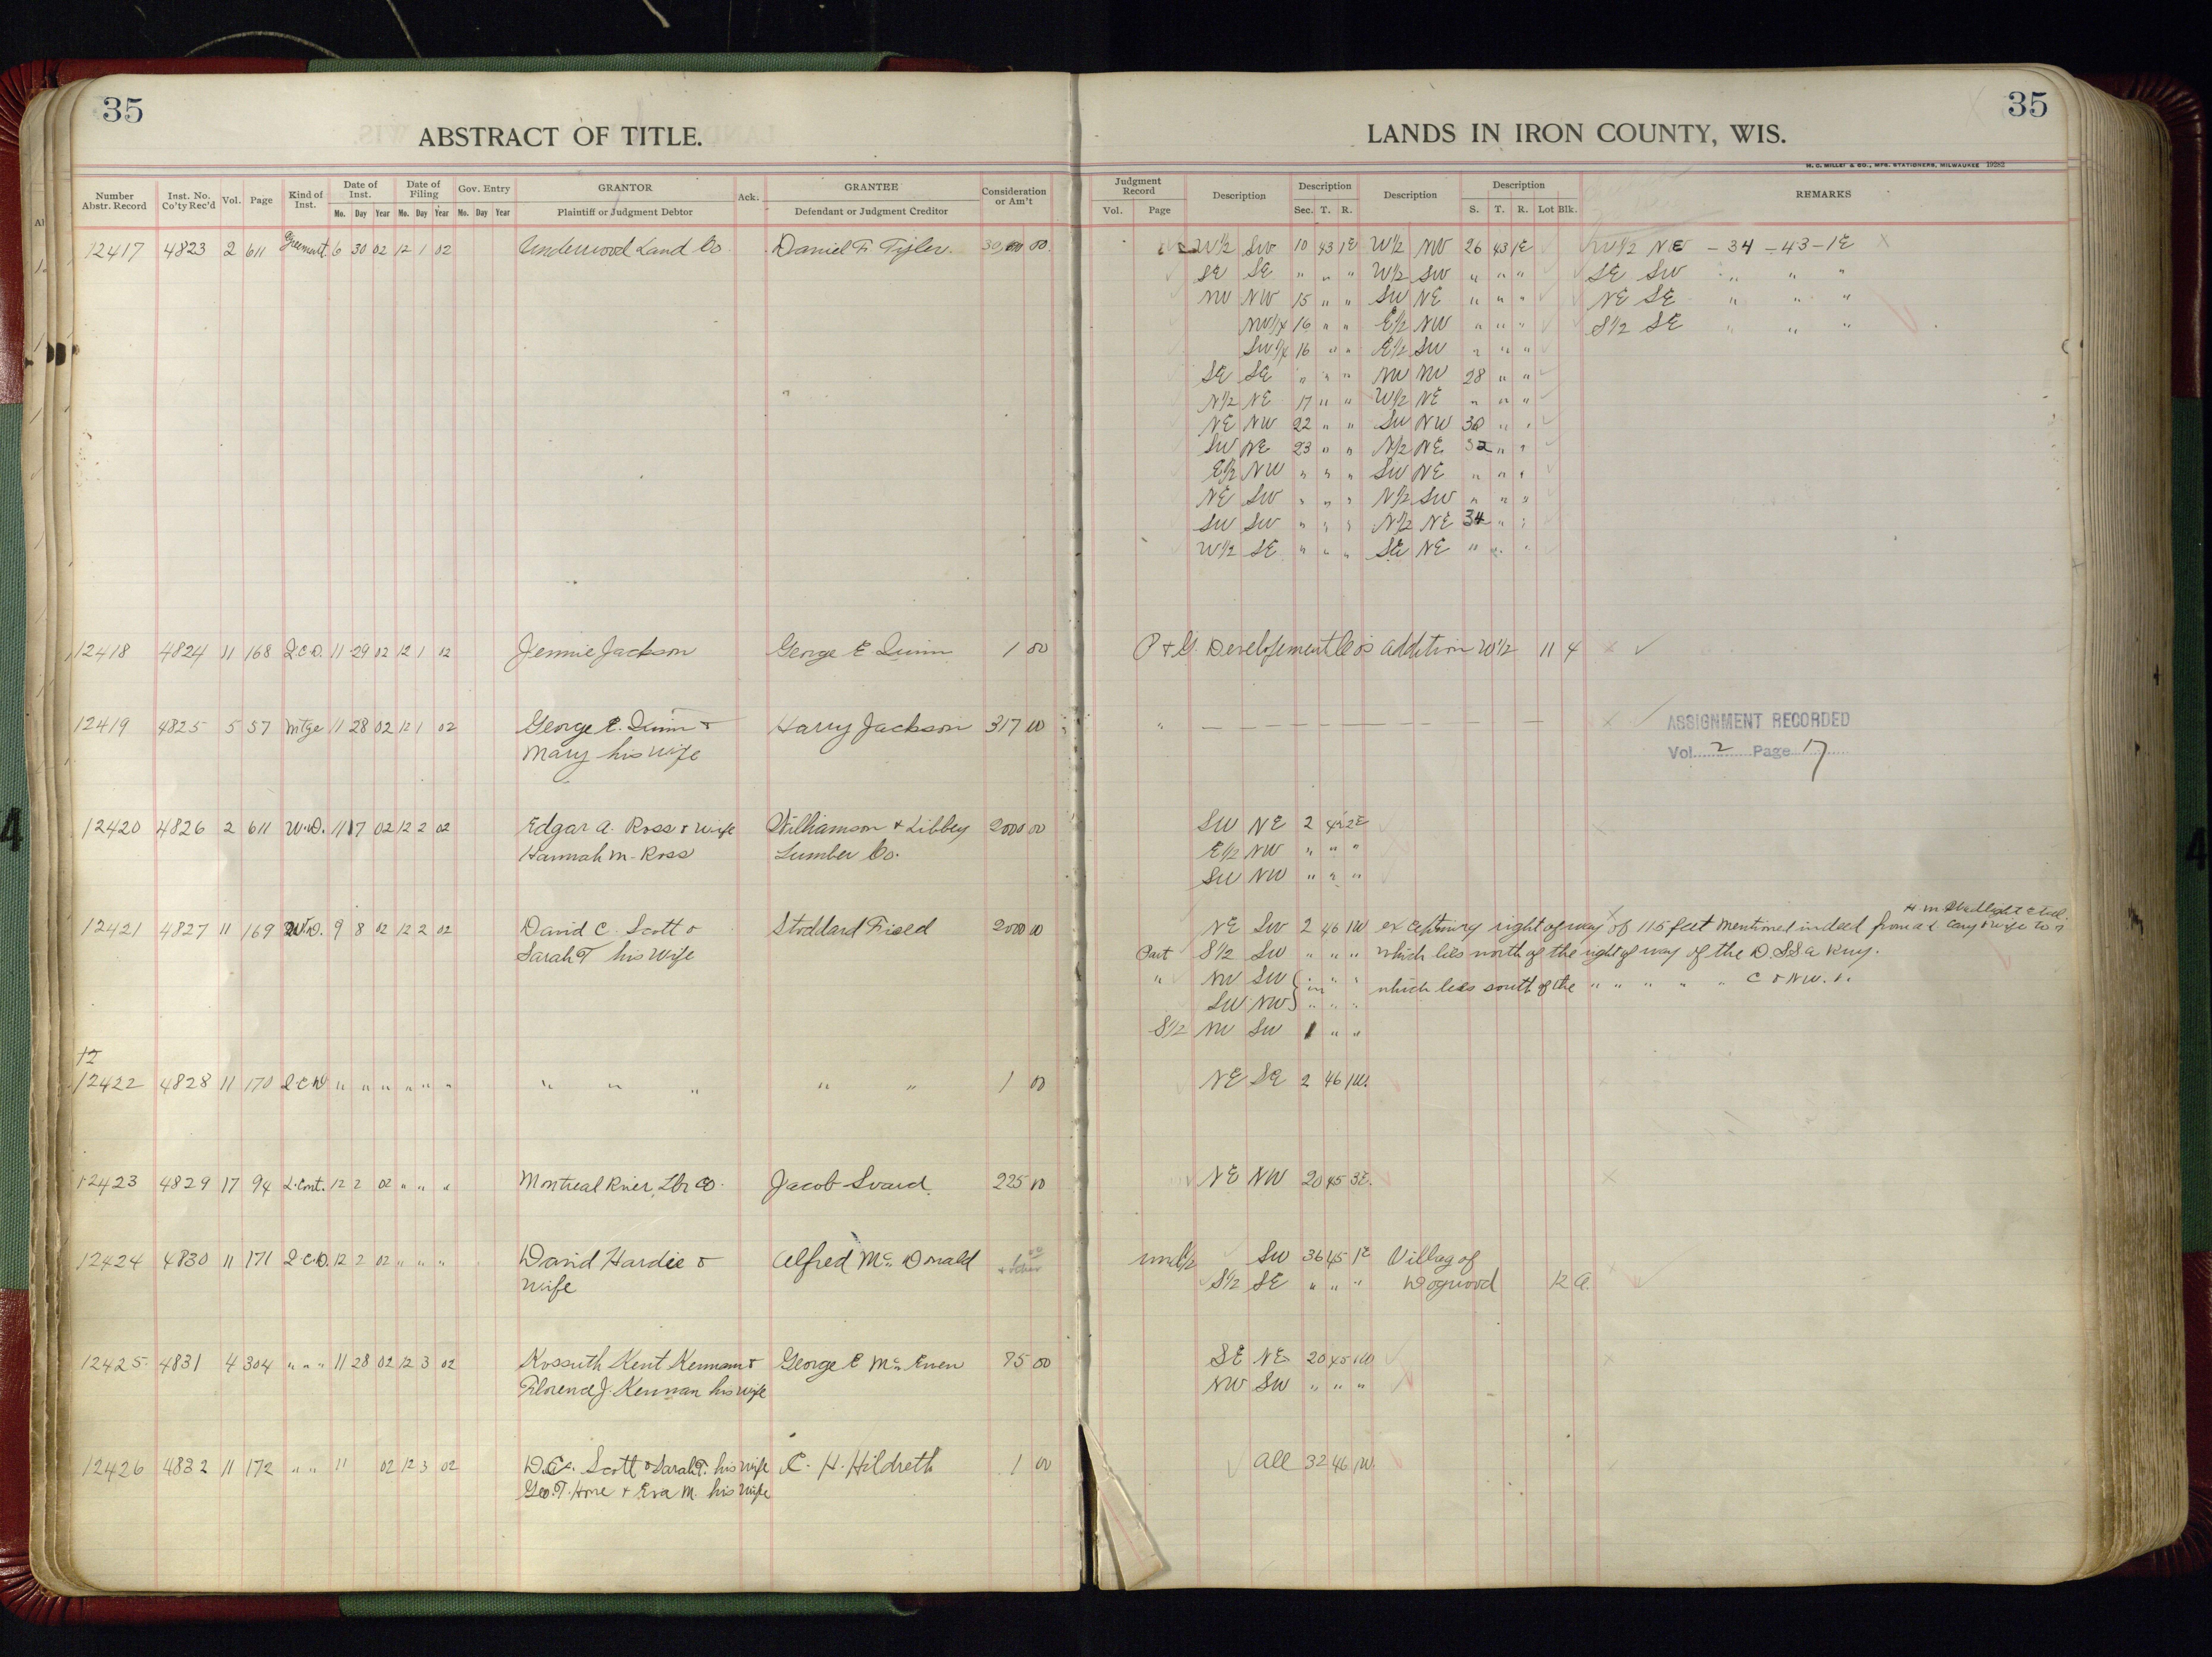 35
35
ABSTRACT OF TITLE.
LANDS IN IRON COUNTY, WIS.
H. C. MILLER & CO., MFG. STATIONERS, MILWAUKEE 19262
Number Abstr. Record Inst. No. Co'ty Rec'd Vol. Page Kind of Inst. Date of Inst. Mo. Day Year Date of Filing Mo. Day Year Gov. Entry Mo. Day Year GRANTOR Plaintiff or Judgment Debtor Ack. GRANTEE Defendant or Judgment Creditor Consideration or Am't
Judgment Record Vol. Page Description Description Sec. T. R. Description Description S. T. R. Lot Blk. REMARKS
12417 4823 2 611 6 30 02 12 1 02 Underwood Land Co. Daniel F. Tyler. 00 W½ SW 10 43 1E W½ NW 26 43 1E W½ NE - 34 - 43 - 1E
SE SE " " " W½ SW " " " SE SW " " "
NW NW 15 " " SW NE " " " NE SE " " "
NW¼ 16 " " E½ NW " " " S½ SE " " "
SW¼ 16 " " E½ SW " " "
SE SE " " " NW NW 28 " "
N½ NE 17 " " W½ NE " " "
NE NW 22 " " SW NW 30 " "
SW NE 23 " " N½ NE 32 " "
E½ NW " " " SW NE " " "
NE SW " " " N½ SW " " "
SW SW " " " N½ NE 34 " "
W½ SE " " " SE NE " " "
12418 4824 11 168 Q.C.D. 11 29 02 12 1 02 Jennie Jackson George E Quinn 1 00 P & G. Developement Co's addition W½ 11 4
12419 4825 5 57 Mtge 11 28 02 12 1 02 George E. Quinn & Harry Jackson 317 00 " — — — —
Mary his wife
ASSIGNMENT RECORDED
Vol. 2 Page 17
12420 4826 2 611 W.D. 11 17 02 12 2 02 Edgar A. Ross & wife Williamson & Libbey 2000 00 SW NE 2 42 2E
Hannah M. Ross Lumber Co. E½ NW " " "
SW NW " " "
12421 4827 11 169 W.D. 9 8 02 12 2 02 David C. Scott & Stoddard Field 2000 00 NE SW 2 46 1W right of way of 115 feet mentioned in deed from
Sarah T his wife Part S½ SW " " " which lies north of the right of way of the D.S.S & A Rwy.
" NW SW " " " which lies south of the " " " " " C & N.W. "
SW NW " " "
S½ NW SW 1 " "
12422 4828 11 170 Q.C.D " " " " " " " " " " " 1 00 NE SE 2 46 1W.
12423 4829 17 94 L.Cont. 12 2 02 " " " Montreal River Lbr Co. Jacob Svard 225 00 NE NW 20 45 3E.
12424 4830 11 171 Q.C.D. 12 2 02 " " " David Hardie & Alfred Mc Donald 1 00 und½ SW 36 45 1E Village of
wife S½ SE " " " Dogwood 12 A.
12425 4831 4 304 " " " 11 28 02 12 3 02 Kossuth Kent Kennan & George E Mc Euen 75 00 SE NE 20 45 1W
Florence J. Kennan his wife NW SW " " "
12426 4832 11 172 " " 11 02 12 3 02 D.C. Scott & Sarah T. his wife C. H. Hildreth 1 00 All 32 46 1W.
Geo. T. Hore & Eva M. his wife